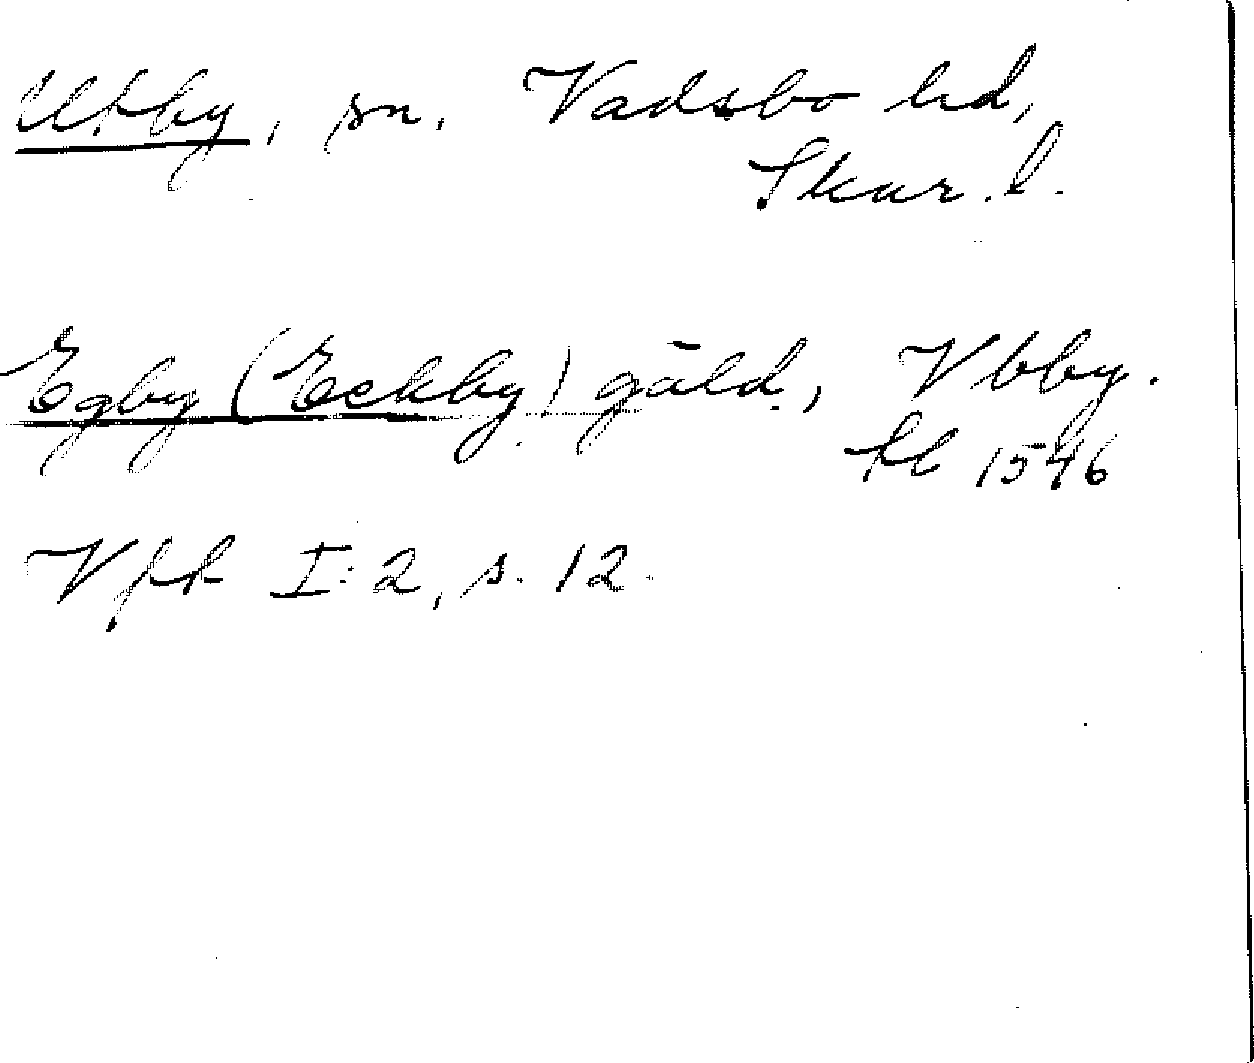 Utby, sn. Vadsbo hd,
Skar. l.
Egby (Eckby) gäld., Vbby.
hl 1546
Vfk I:2, s. 12.